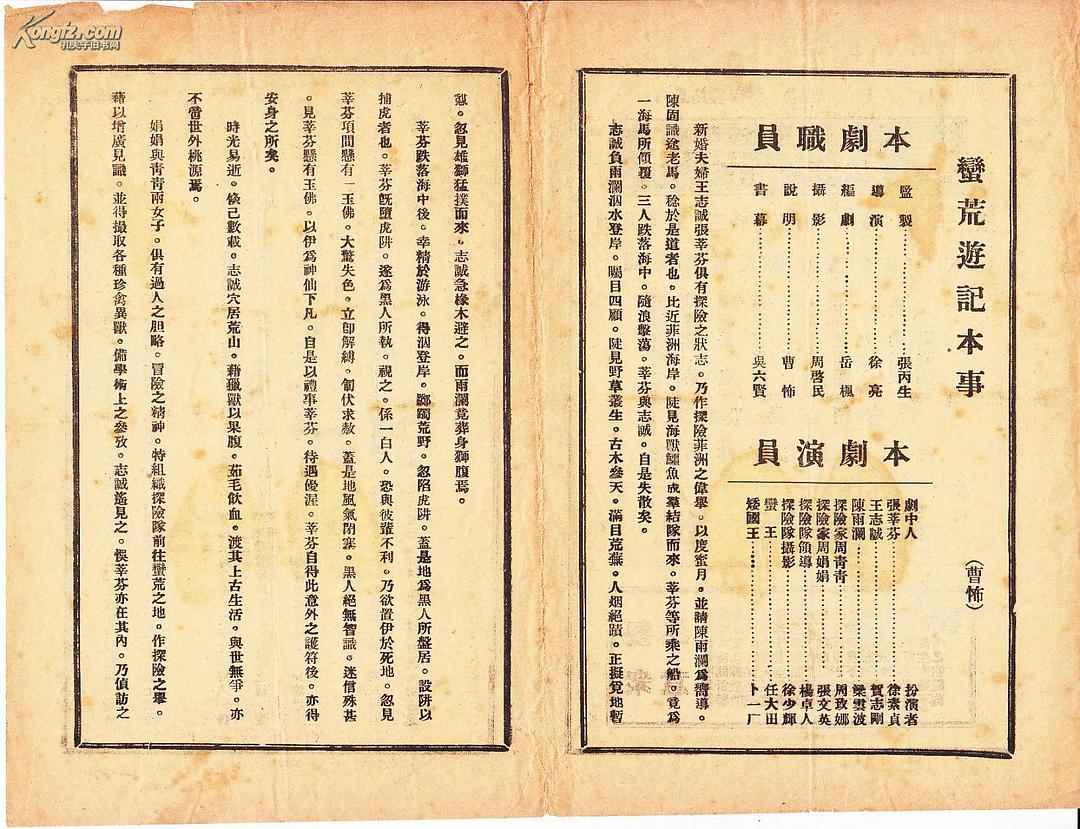 Kongfz.com
孔夫子旧书网
蠻荒遊記本事
(曹怖)
本劇職員
監製……………張丙生
導演……………徐亮
編劇……………岳楓
攝影……………周啓民
說明……………曹怖
書幕……………吳六賢
本劇演員
劇中人 扮演者
張莘芬……………徐素貞
王志誠……………賀志剛
陳雨瀾……………梁雲波
探險家周靑靑……………周玫娜
探險家周娟娟……………張文英
探險隊領導……………楊卓人
探險隊攝影……………徐少輝
蠻王……………任大田
矮國王……………卜一厂
新婚夫婦王志誠張莘芬俱有探險之狀志。乃作探險菲洲之偉舉。以度蜜月。並請陳雨瀾爲嚮導。
陳固識途老馬。稔於是道者也。比近菲洲海岸。陡見海獸鱷魚成羣結隊而來。莘芬等所乘之船。竟爲
一海馬所傾覆。三人跌落海中。隨浪擊蕩。莘芬與志誠。自是失散矣。
志誠負雨瀾泅水登岸。矚目四顧。陡見野草叢生。古木叄天。滿目荒蕪。人烟絕蹟。正擬覓地暫
憇。忽見雄獅猛撲而來。志誠急椽木避之。而雨瀾竟葬身獅腹焉。
莘芬跌落海中後。幸精於游泳。得泅登岸。躑躅荒野。忽陷虎阱。蓋是地爲黑人所盤居。設阱以
捕虎者也。莘芬旣墮虎阱。遂爲黑人所執。視之。係一白人。恐與彼輩不利。乃欲置伊於死地。忽見
莘芬項間懸有一玉佛。大驚失色。立卽解縛。匍伏求赦。蓋是地風氣閉塞。黑人絕無智識。迷信殊甚
。見莘芬懸有玉佛。以伊爲神仙下凡。自是以禮事莘芬。待遇優渥。莘芬自得此意外之護符後。亦得
安身之所矣。
時光易逝。倐已數載。志誠穴居荒山。藉獵獸以果腹。茹毛飲血。渡其上古生活。與世無爭。亦
不啻世外桃源焉。
娟娟與靑靑兩女子。俱有過人之胆略。冒險之精神。特組織探險隊前往蠻荒之地。作探險之舉。
藉以增廣見識。並得攝取各種珍禽異獸。備學術上之參攷。志誠遙見之。悞莘芬亦在其內。乃偵訪之